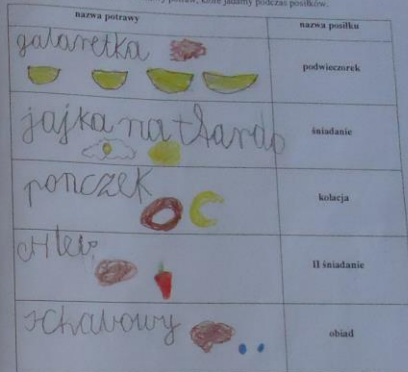 potraw, które jadamy podczas posiłków.
nazwa potrawy nazwa posiłku
galaretka podwieczorek
jajka na tward​o śniadanie
ponczek kolacja
chleb II śniadanie
schabowy obiad